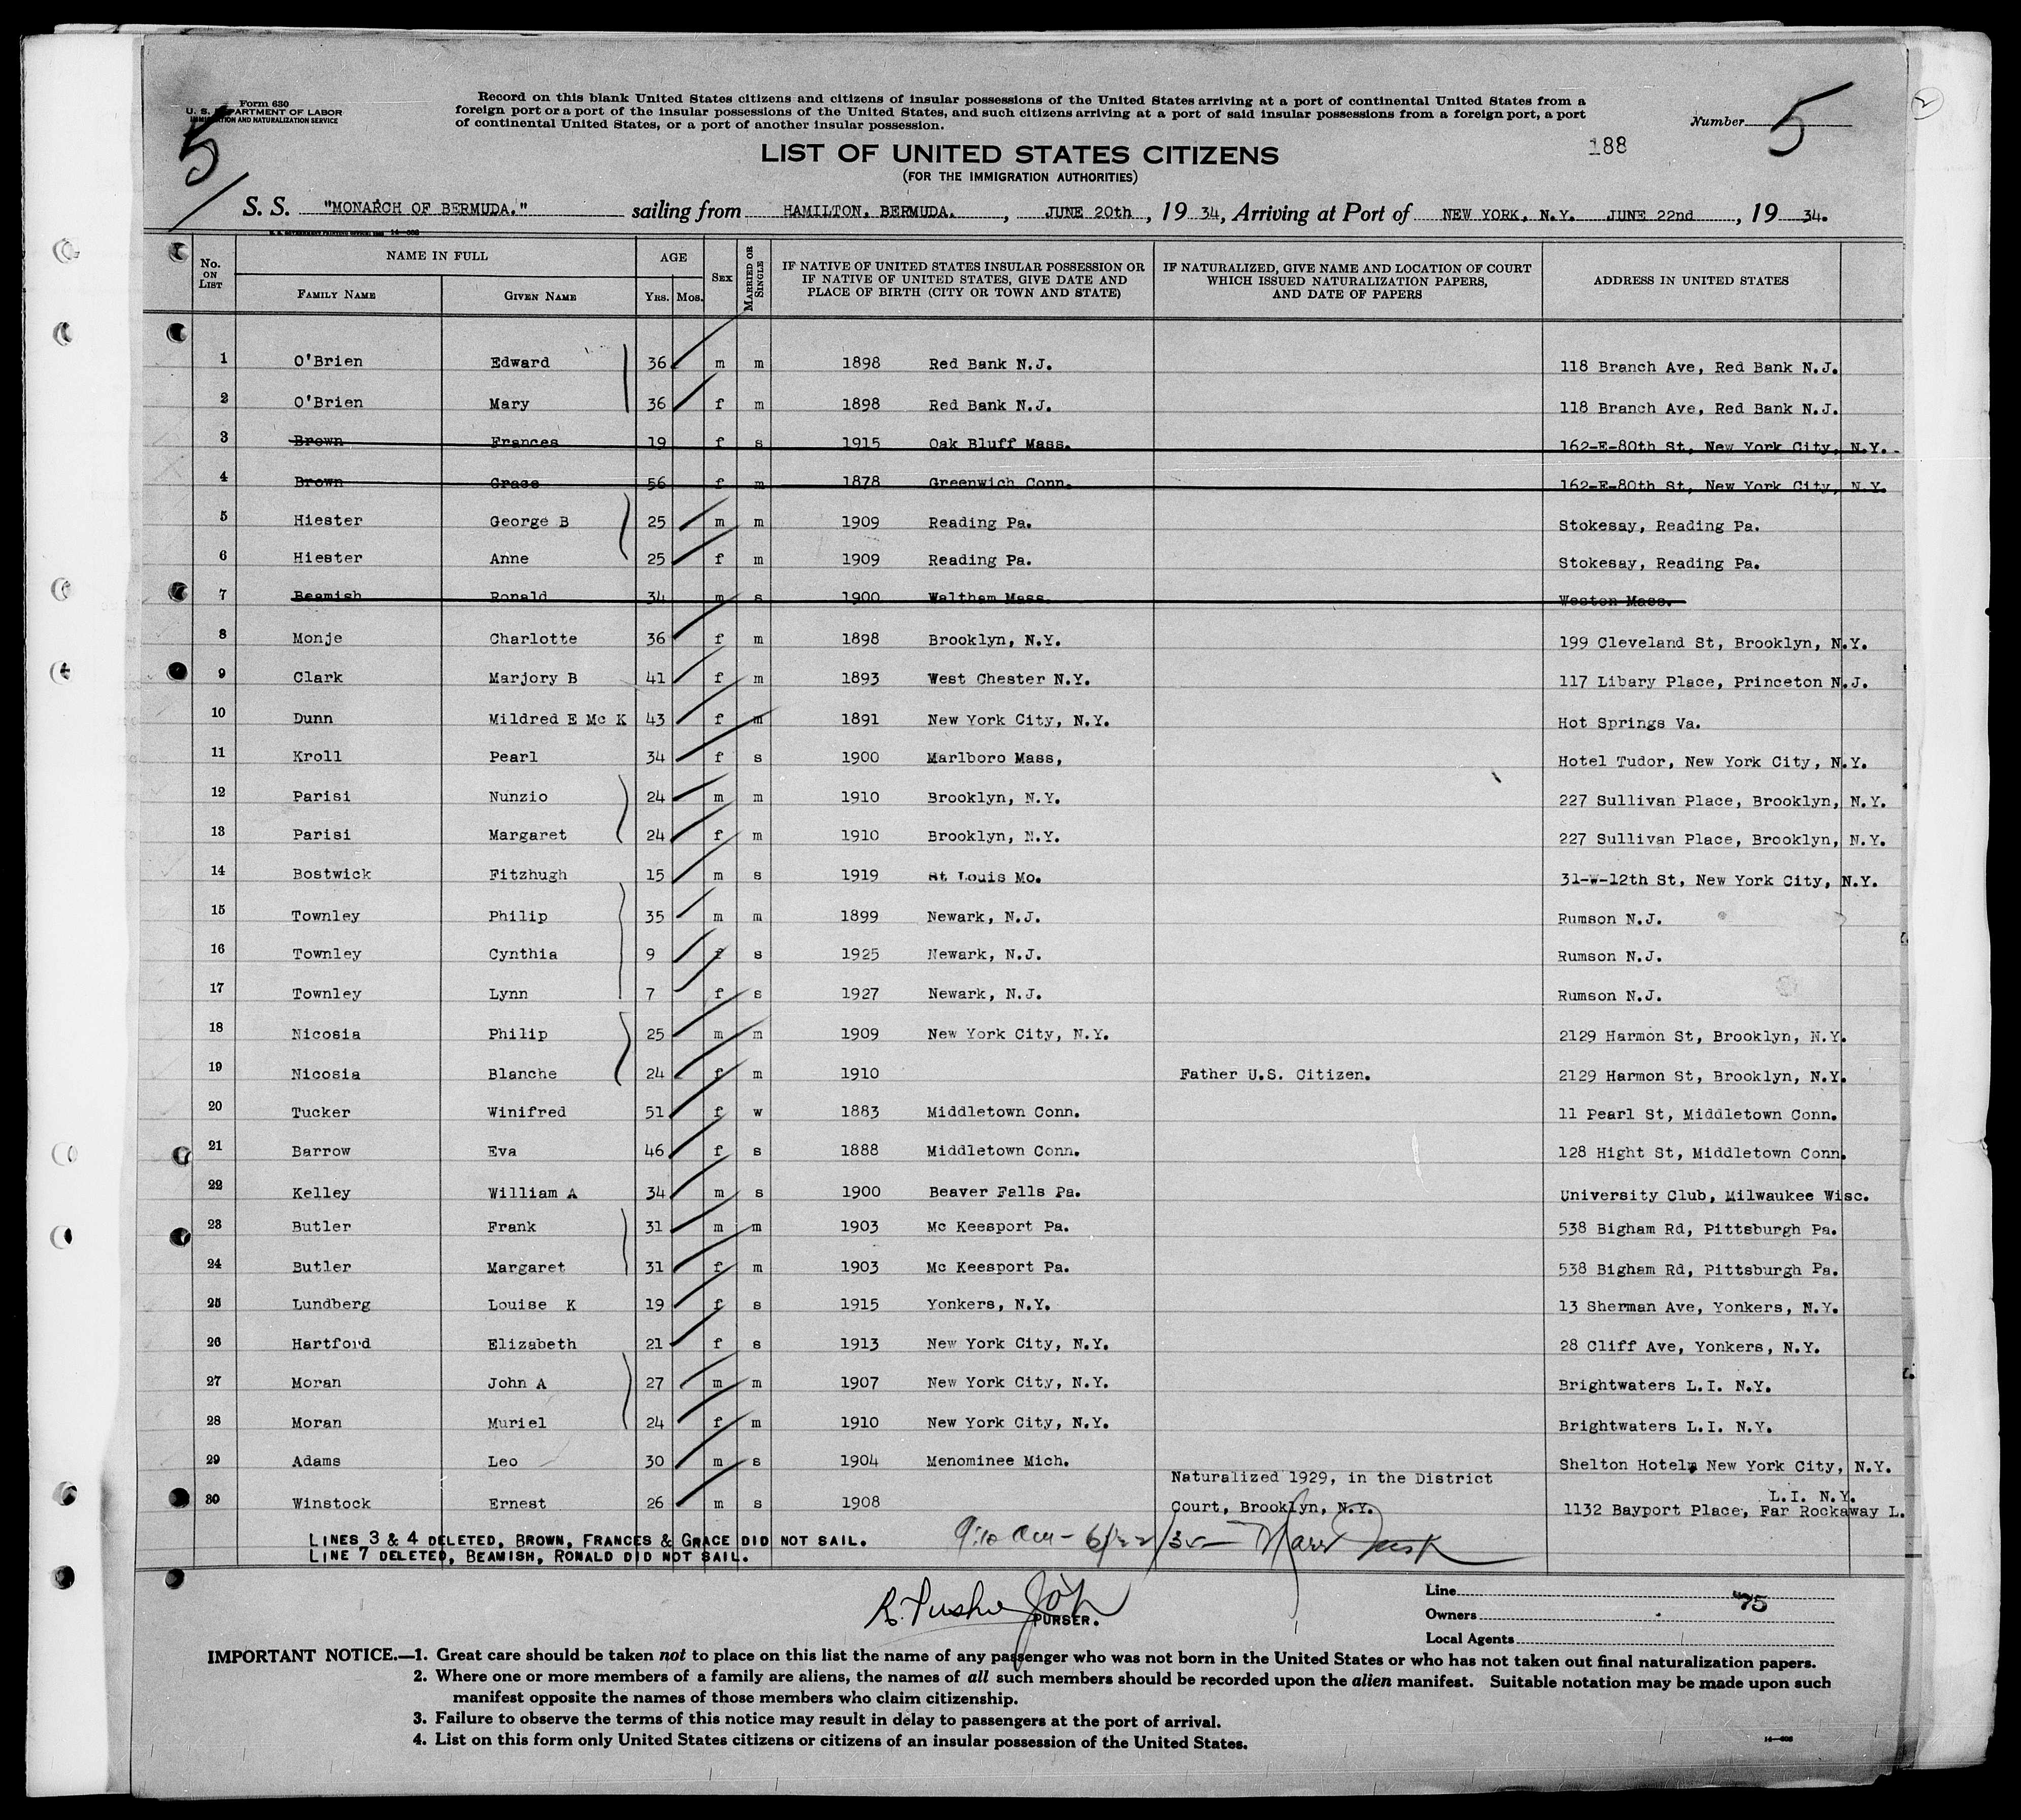 Form 630
U. S. DEPARTMENT OF LABOR
IMMIGRATION AND NATURALIZATION SERVICE
5
Record on this blank United States citizens and citizens of insular possessions of the United States arriving at a port of continental United States from a
foreign port or a port of the insular possessions of the United States, and such citizens arriving at a port of said insular possessions from a foreign port, a port
of continental United States, or a port of another insular possession.
Number 5
2
188
LIST OF UNITED STATES CITIZENS
(FOR THE IMMIGRATION AUTHORITIES)
S. S. "MONARCH OF BERMUDA." sailing from HAMILTON. BERMUDA. , JUNE 20th , 19 34, Arriving at Port of NEW YORK, N.Y. JUNE 22nd , 19 34.
No. ON LIST NAME IN FULL AGE SEX MARRIED OR SINGLE IF NATIVE OF UNITED STATES INSULAR POSSESSION OR IF NATIVE OF UNITED STATES, GIVE DATE AND PLACE OF BIRTH (CITY OR TOWN AND STATE) IF NATURALIZED, GIVE NAME AND LOCATION OF COURT WHICH ISSUED NATURALIZATION PAPERS, AND DATE OF PAPERS ADDRESS IN UNITED STATES
FAMILY NAME GIVEN NAME YRS. MOS.
1 O'Brien Edward 36 m m 1898 Red Bank N.J. 118 Branch Ave, Red Bank N.J.
2 O'Brien Mary 36 f m 1898 Red Bank N.J. 118 Branch Ave, Red Bank N.J.
3 Brown Frances 19 f s 1915 Oak Bluff Mass. 162-E-80th St, New York City, N.Y.
4 Brown Grace 56 f m 1878 Greenwich Conn. 162-E-80th St, New York City, N.Y.
5 Hiester George B 25 m m 1909 Reading Pa. Stokesay, Reading Pa.
6 Hiester Anne 25 f m 1909 Reading Pa. Stokesay, Reading Pa.
7 Beamish Ronald 34 m s 1900 Waltham Mass. Weston Mass.
8 Monje Charlotte 36 f m 1898 Brooklyn, N.Y. 199 Cleveland St, Brooklyn, N.Y.
9 Clark Marjory B 41 f m 1893 West Chester N.Y. 117 Libary Place, Princeton N.J.
10 Dunn Mildred E Mc K 43 f m 1891 New York City, N.Y. Hot Springs Va.
11 Kroll Pearl 34 f s 1900 Marlboro Mass, Hotel Tudor, New York City, N.Y.
12 Parisi Nunzio 24 m m 1910 Brooklyn, N.Y. 227 Sullivan Place, Brooklyn, N.Y.
13 Parisi Margaret 24 f m 1910 Brooklyn, N.Y. 227 Sullivan Place, Brooklyn, N.Y.
14 Bostwick Fitzhugh 15 m s 1919 St Louis Mo. 31-W-12th St, New York City, N.Y.
15 Townley Philip 35 m m 1899 Newark, N.J. Rumson N.J.
16 Townley Cynthia 9 f s 1925 Newark, N.J. Rumson N.J.
17 Townley Lynn 7 f s 1927 Newark, N.J. Rumson N.J.
18 Nicosia Philip 25 m m 1909 New York City, N.Y. 2129 Harmon St, Brooklyn, N.Y.
19 Nicosia Blanche 24 f m 1910 Father U.S. Citizen. 2129 Harmon St, Brooklyn, N.Y.
20 Tucker Winifred 51 f w 1883 Middletown Conn. 11 Pearl St, Middletown Conn.
21 Barrow Eva 46 f s 1888 Middletown Conn. 128 Hight St, Middletown Conn.
22 Kelley William A 34 m s 1900 Beaver Falls Pa. University Club, Milwaukee Wisc.
23 Butler Frank 31 m m 1903 Mc Keesport Pa. 538 Bigham Rd, Pittsburgh Pa.
24 Butler Margaret 31 f m 1903 Mc Keesport Pa. 538 Bigham Rd, Pittsburgh Pa.
25 Lundberg Louise K 19 f s 1915 Yonkers, N.Y. 13 Sherman Ave, Yonkers, N.Y.
26 Hartford Elizabeth 21 f s 1913 New York City, N.Y. 28 Cliff Ave, Yonkers, N.Y.
27 Moran John A 27 m m 1907 New York City, N.Y. Brightwaters L.I. N.Y.
28 Moran Muriel 24 f m 1910 New York City, N.Y. Brightwaters L.I. N.Y.
29 Adams Leo 30 m s 1904 Menominee Mich. Shelton Hotel, New York City, N.Y.
Naturalized 1929, in the District
L.I. N.Y.
30 Winstock Ernest 26 m s 1908 Court, Brooklyn, N.Y. 1132 Bayport Place, Far Rockaway L.
LINES 3 & 4 DELETED, BROWN, FRANCES & GRACE DID NOT SAIL.
LINE 7 DELETED, BEAMISH, RONALD DID NOT SAIL.
PURSER.
Line
75
Owners
Local Agents
IMPORTANT NOTICE.—1. Great care should be taken not to place on this list the name of any passenger who was not born in the United States or who has not taken out final naturalization papers.
2. Where one or more members of a family are aliens, the names of all such members should be recorded upon the alien manifest. Suitable notation may be made upon such
manifest opposite the names of those members who claim citizenship.
3. Failure to observe the terms of this notice may result in delay to passengers at the port of arrival.
4. List on this form only United States citizens or citizens of an insular possession of the United States.